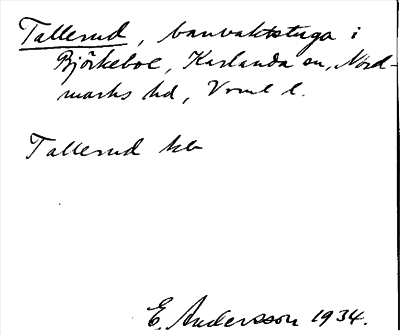 Tallerud, banvaktstuga i
Björkeboe, Karlanda sn, Nord-
marks hd, Vrml l.
Tallerud kb
E. Andersson 1934.